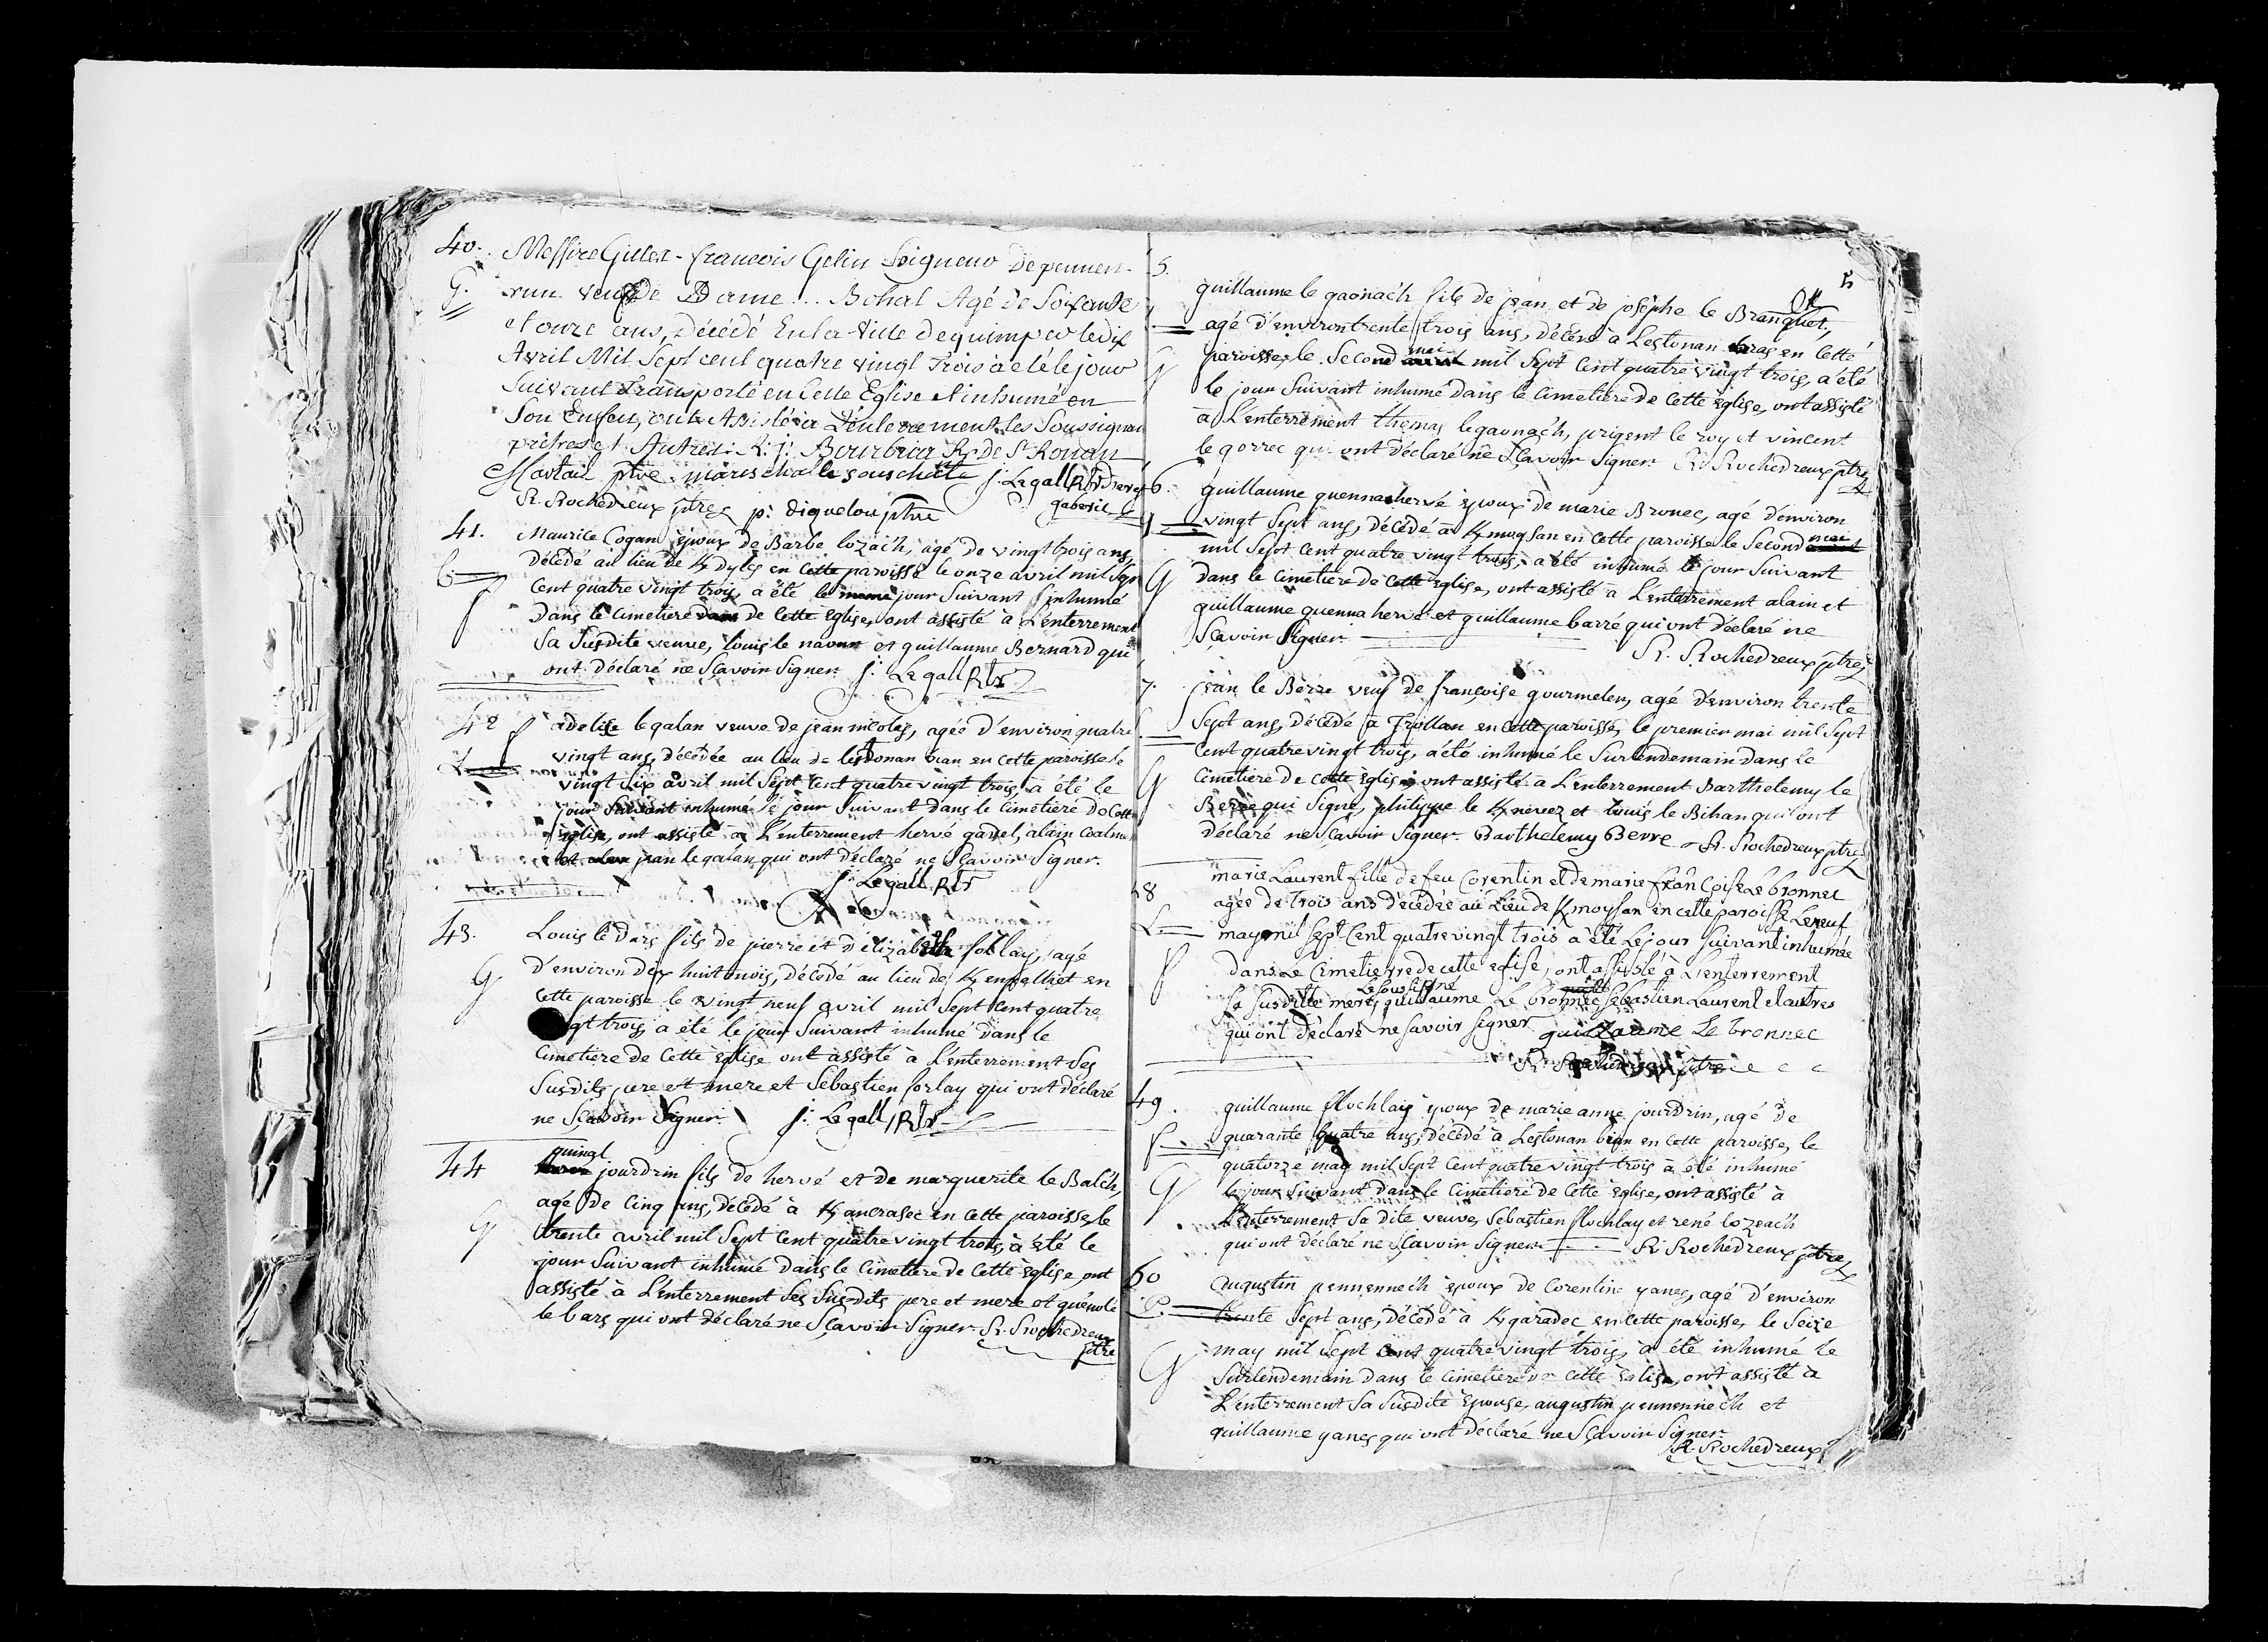 40. Messire Gilles-francois Gelin Seigneur de penner-
G. run veuf de Dame... Bohal Agé de Soixante
et onze ans, Décédé En la Ville de quimper le dix
Avril Mil Sept cent quatre vingt Trois à été le jour
Suivant Transporté en Cette Eglise et inhumé en
Son Enfeu, ont Assisté à L'enterrement les Soussignan
prêtres et Autres: R: j: Bourbria Rr de St Ronan
Martail ptre. marischal le souschacte j: Le gall Rtr d'ergué
R. Rochedreux ptre p: diquelou ptre gaberic
41. Maurice Cogan époux de Barbe lozaich, agé de vingt trois ans,
C. décédé au lieu de K/dyles en Cette paroisse le onze avril mil Sept
Cent quatre vingt trois, a été le jour Suivant inhumé
Dans le Cimetiere de Cette Eglise, ont assisté à L'enterrement
Sa Susdite veuve, louis le naour et guillaume Bernard qui
ont déclaré ne Sçavoir Signer. j: Le gall Rtr
42 adelise le galan veuve de jean nicolas, agée d'environ quatre
vingt ans, décédée au lieu de lestonan vian en cette paroisse le
vingt Six avril mil Sept Cent quatre vingt trois, a été le
jour Suivant inhumé le jour Suivant dans le Cimetiere de Cette
église, ont assisté à L'enterrement hervé gadel, alain Coatme
et jean le galan, qui ont déclaré ne Sçavoir Signer.
j: Le gall Rtr
43. Louis le Dars fils de pierre et d'Elizabeth follay, agé
G d'environ Dix huit mois, décédé au lieu de en
Cette paroisse le vingt neuf avril mil Sept Cent quatre
gt trois, a été le jour Suivant inhumé dans le
Cimetiere de Cette Eglise, ont assisté à L'enterrement Ses
Susdits pere et mere et Sebastien forlay qui ont déclaré
ne Scavoir Signer. j: Le gall, Rtr
guingl
44 jourdrin fils de hervé et de marguerite le Balc'h,
agé De Cinq ans, décédé à en cette paroisse, le
G trente avril mil Sept Cent quatre vingt trois, à été le
jour Suivant inhumé dans le Cimetiere de Cette Eglise, ont
assisté à L'enterrement Ses Susdits pere et mere et guénolé
le bars qui ont déclaré ne Sçavoir Signer. R. Rochedreux
ptre
5
5. guillaume le gaonach fils de jean et de josephe le Branquet,
agé d'environ trente trois ans, décédé à Lestonan bras en Cette
mai
G paroisse, le Second mil Sept Cent quatre vingt trois, a été
le jour Suivant inhumé dans le Cimetiere de Cette Eglise, ont assisté
à L'enterrement thomas le gaonach, prigent le roy et vincent
le gorrec qui ont déclaré ne Sçavoir Signer R. Rochedreux ptre
6. guillaume quennaherve époux de marie Bronec, agé d'environ
vingt Sept ans, décédé à K/moysan en Cette paroisse le Second mai
mil Sept Cent quatre vingt trois, a été inhumé le jour Suivant
G dans le Cimetiere de Cette Eglise, ont assisté a L'enterrement alain et
guillaume quennaherve et guillaume barré qui ont déclaré ne
Sçavoir Signer
R. Rochedreux ptre
7. jean le Berre veuf de françoise gourmelen, agé d'environ trente
Sept ans, décédé à Trollan en Cette paroisse, le premier mai mil Sept
Cent quatre vingt trois, a été inhumé le Surlendemain dans le
G Cimetiere de Cette Eglise, ont assisté a L'enterrement Barthelemy le
Berre qui Signe, philippe le K/nevez et louis le Bihan qui ont
déclaré ne Scavoir Signer. Barthelemy Berre R. Rochedreux ptre
marie Laurent fille de feu Corentin et de marie françoise Le bronnec
48 agée de trois ans décédée au Lieu de K/moysan en cette paroisse Le neuf
L may mil Sept Cent quatre vingt trois à été Le jour Suivant inhumée
dans Le Cimetierre de cette eglise, ont assisté à L'enterrement
Le Soussigné
sa susditte mere, guillaume Le bronnec Sebastien Laurent et autres
qui ont déclaré ne savoir signer guillaume Le bronnec
R. Rochedreux ptre
49. guillaume flochlay époux de marie anne jourdrin, agé de
quarante quatre ans, décédé à Lestonan bian en Cette paroisse, le
quatorze may mil Sept Cent quatre vingt trois à été inhumé
G le jour Suivant dans le Cimetiere de Cette Eglise, ont assisté à
L'enterrement Sa dite veuve, Sebastien flochlay et rené lozeach
qui ont déclaré ne Sçavoir Signer R. Rochedreux ptre
50 augustin pennennech époux de Corentine yanes, agé d'environ
trente Sept ans, décédé à K/garadec en Cette paroisse, le Seize
may mil Sept Cent quatre vingt trois, à été inhumé le
G Surlendemain dans le Cimetiere de Cette Eglise, ont assisté à
L'enterrement Sa Susdite Epouse, augustin pennennech et
guillaume yanes qui ont déclaré ne Sçavoir Signer
R. Rochedreux